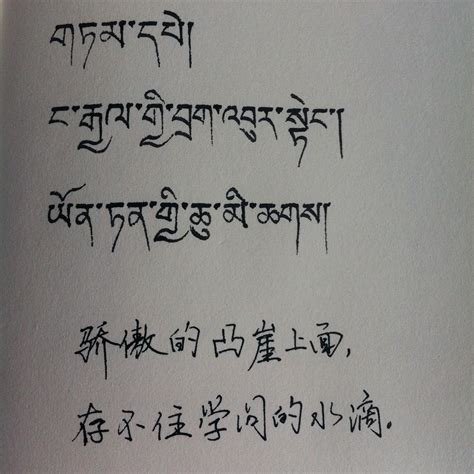 གཏམ་དཔེ།
ང་རྒྱལ་གྱི་བྲག་འབུར་སྟེང་།
ཡོན་ཏན་གྱི་ཆུ་མི་ཆགས།
骄傲的凸崖上面,
存不住学问的水滴.